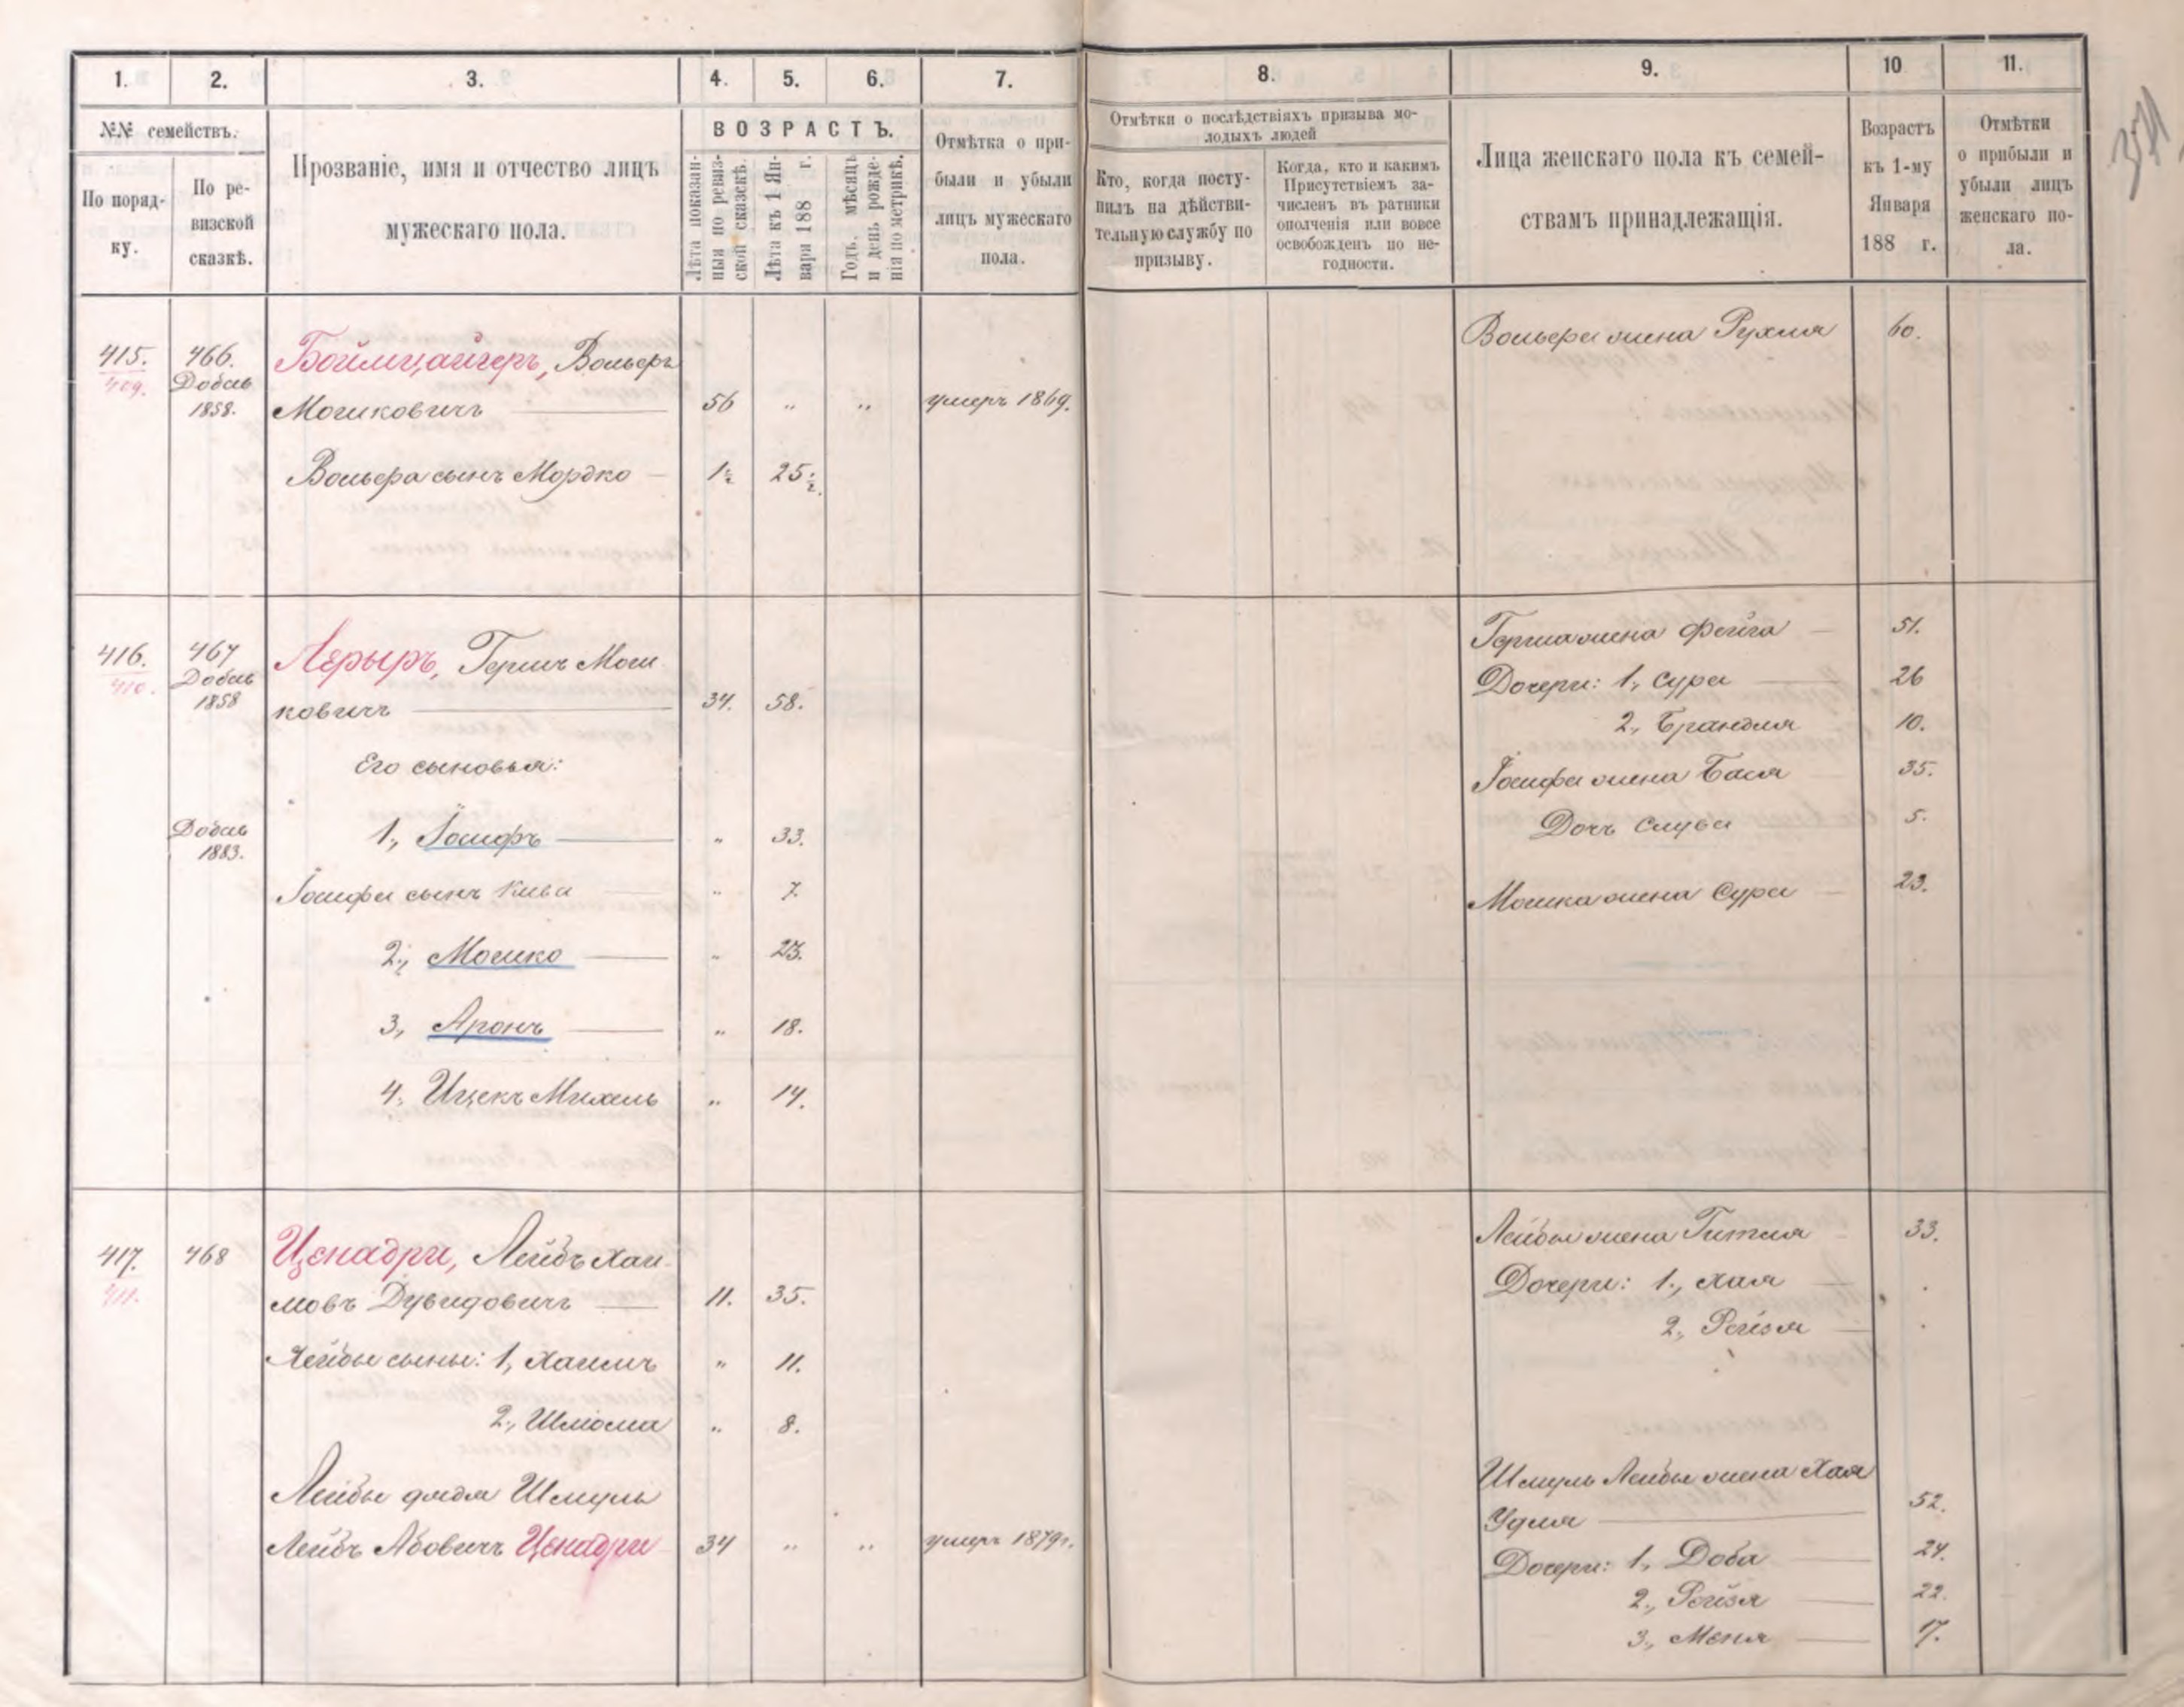 1. 2. 3. 4. 5. 6. 7. 8. 9. 10 11.
№№ семействъ.
По поряд-
ку.
По ре-
визской
сказкѣ.
Прозваніе, имя и отчество лицъ
мужескаго пола.
ВОЗРАСТЪ.
Лѣта показан-
ныя по ревиз-
ской сказкѣ.
Лѣта къ 1 Ян-
варя 188 г.
Годъ, мѣсяцъ
и день рожде-
нія по метрикѣ.
Отмѣтка о при-
были и убыли
лицъ мужескаго
пола.
Отмѣтки о послѣдствіяхъ призыва мо-
лодыхъ людей
Кто, когда посту-
пилъ на дѣйстви-
тельную службу по
призыву.
Когда, кто и какимъ
Присутствіемъ за-
численъ въ ратники
ополченія или вовсе
освобожденъ по не-
годности.
Лица женскаго пола къ семей-
ствамъ принадлежащія.
Возрастъ
къ 1-му
Января
188 г.
Отмѣтки
о прибыли и
убыли лицъ
женскаго по-
ла.
415. 466. Боймцайгеръ, Вольфъ
409. Добав
1858. Мошковичъ 56 " " умеръ 1869.
Вольфа сынъ Мордко 1½ 25½.
Вольфа жена Рухля 60.
416. 467 Лерыръ, Гершъ Мош
410. Добав
1858 ковичъ 34. 58.
Его сыновья:
Добав
1883. 1, Іосифъ " 33.
Іосифа сынъ Кива " 7.
2, Мошко " 23.
3, Аронъ " 18.
4, Ицекъ Михель " 14.
Герша жена Фейга 51.
Дочери: 1, Сура 26
2, Брандля 10.
Іосифа жена Бася 35.
Дочь Слува 5.
Мошка жена Сура 23.
417. 468 Ценадри, Лейбъ Хаи
411. мовъ Дувидовичъ 11. 35.
Лейбы сыны: 1, Хаимъ " 11.
2, Шлiома " 8.
Лейбы дядя Шмуль
Лейбъ Абовичъ Ценадри 34 " " умеръ 1879 г.
Лейбы жена Гитля 33.
Дочери: 1, Хая
2, Рейзя
Шмуль Лейбы жена Хая
Удля 52.
Дочери: 1, Доба 24.
2, Рейзя 22.
3, Меня 17.